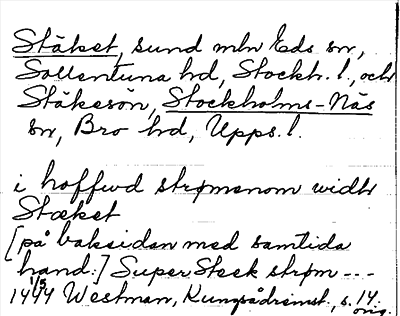 Stäket, sund mln Eds sn,
Sollentuna hd, Stockh. l., och
Stäkesön, Stockholms-Näs
sn, Bro hd, Upps. l.
i hoffwd strømenom widh
Stæket
[på baksidan med samtida
hand:] Super Steek strøm ---
15/1 1444 Westman, Kungsådreinst., s. 14.
orig.